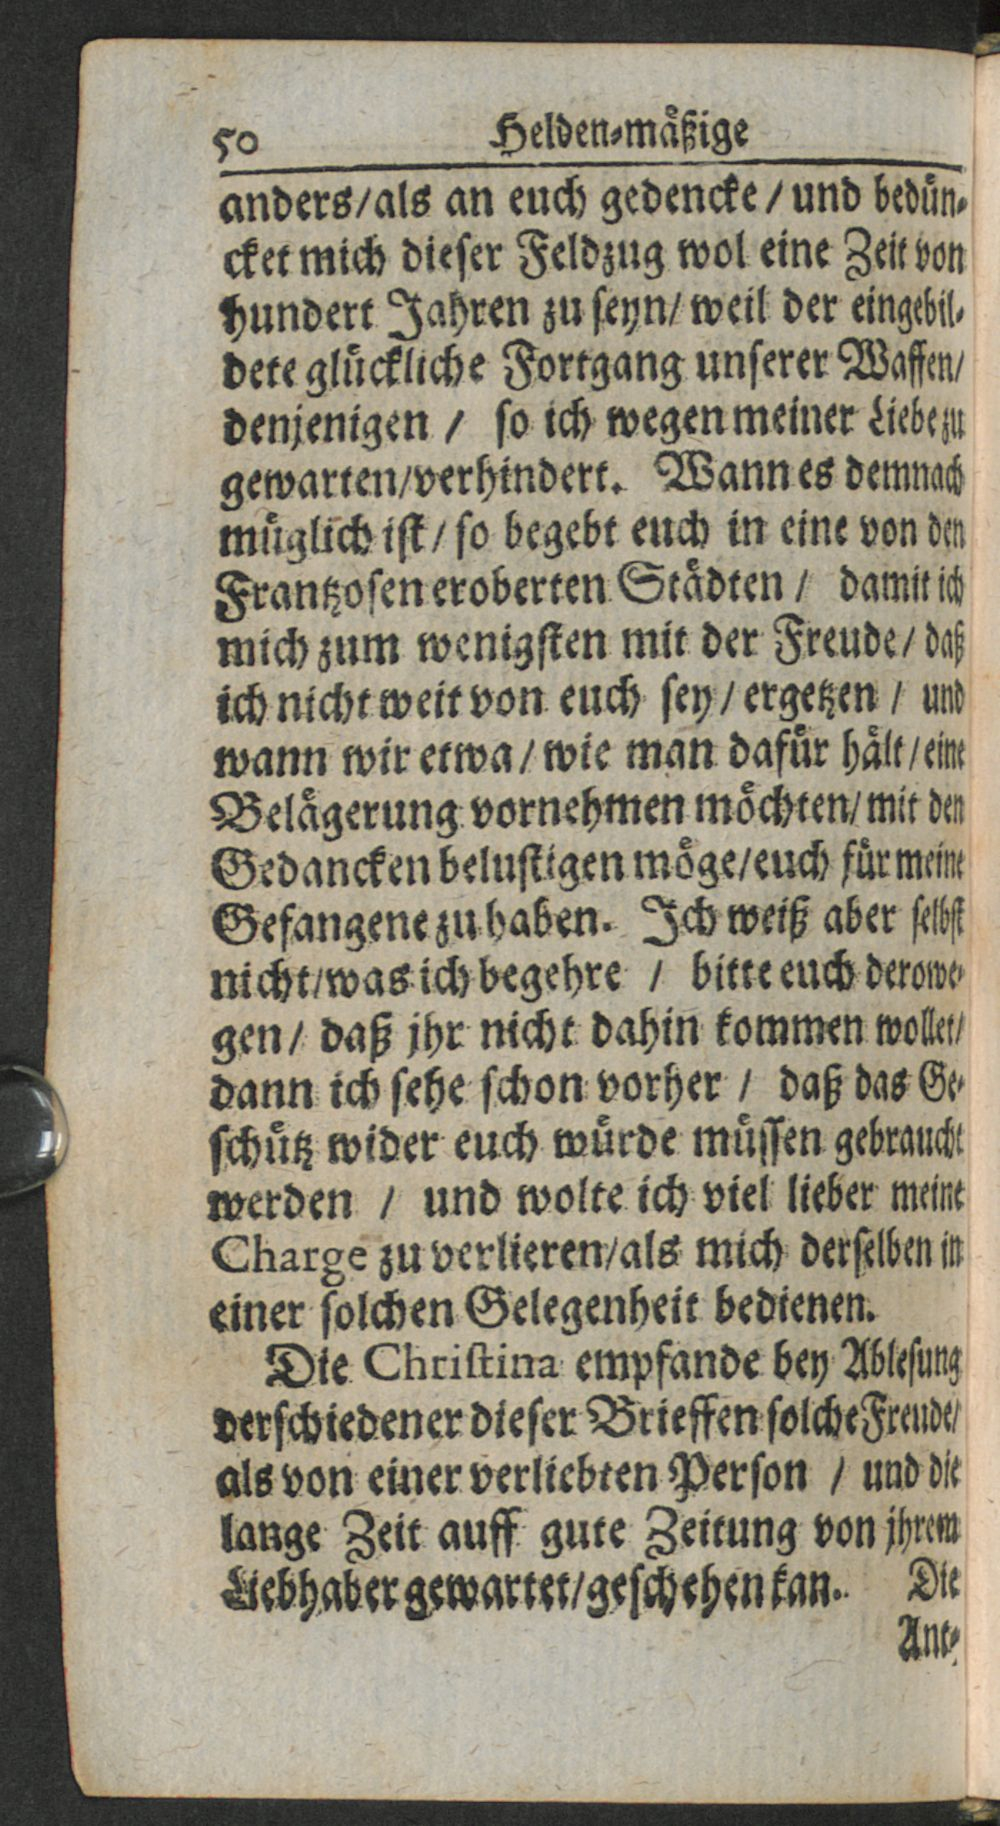 50 Helden-mäßige
anders/als an euch gedencke / und bedün-
cket mich dieser Feldzug wol eine Zeit von
hundert Jahren zu seyn/ weil der eingebil-
dete glückliche Fortgang unserer Waffen/
denjenigen / so ich wegen meiner Liebe zu
gewarten/verhindert. Wann es demnach
müglich ist / so begebt euch in eine von den
Frantzosen eroberten Städten / damit ich
mich zum wenigsten mit der Freude / daß
ich nicht weit von euch sey / ergetzen / und
wann wir etwa / wie man dafür hält / eine
Belägerung vornehmen möchten/ mit den
Gedancken belustigen möge/euch für meine
Gefangene zu haben. Ich weiß aber selbst
nicht/was ich begehre / bitte euch derowe-
gen / daß jhr nicht dahin kommen wollet/
dann ich sehe schon vorher / daß das Ge-
schütz wider euch würde müssen gebraucht
werden / und wolte ich viel lieber meine
Charge zu verlieren/als mich derselben in
einer solchen Gelegenheit bedienen.
Die Christina empfande bey Ablesung
verschiedener dieser Brieffen solche Freude/
als von einer verliebten Person / und die
lange Zeit auff gute Zeitung von jhrem
Liebhaber gewartet/geschehen kan. Die
Ant-